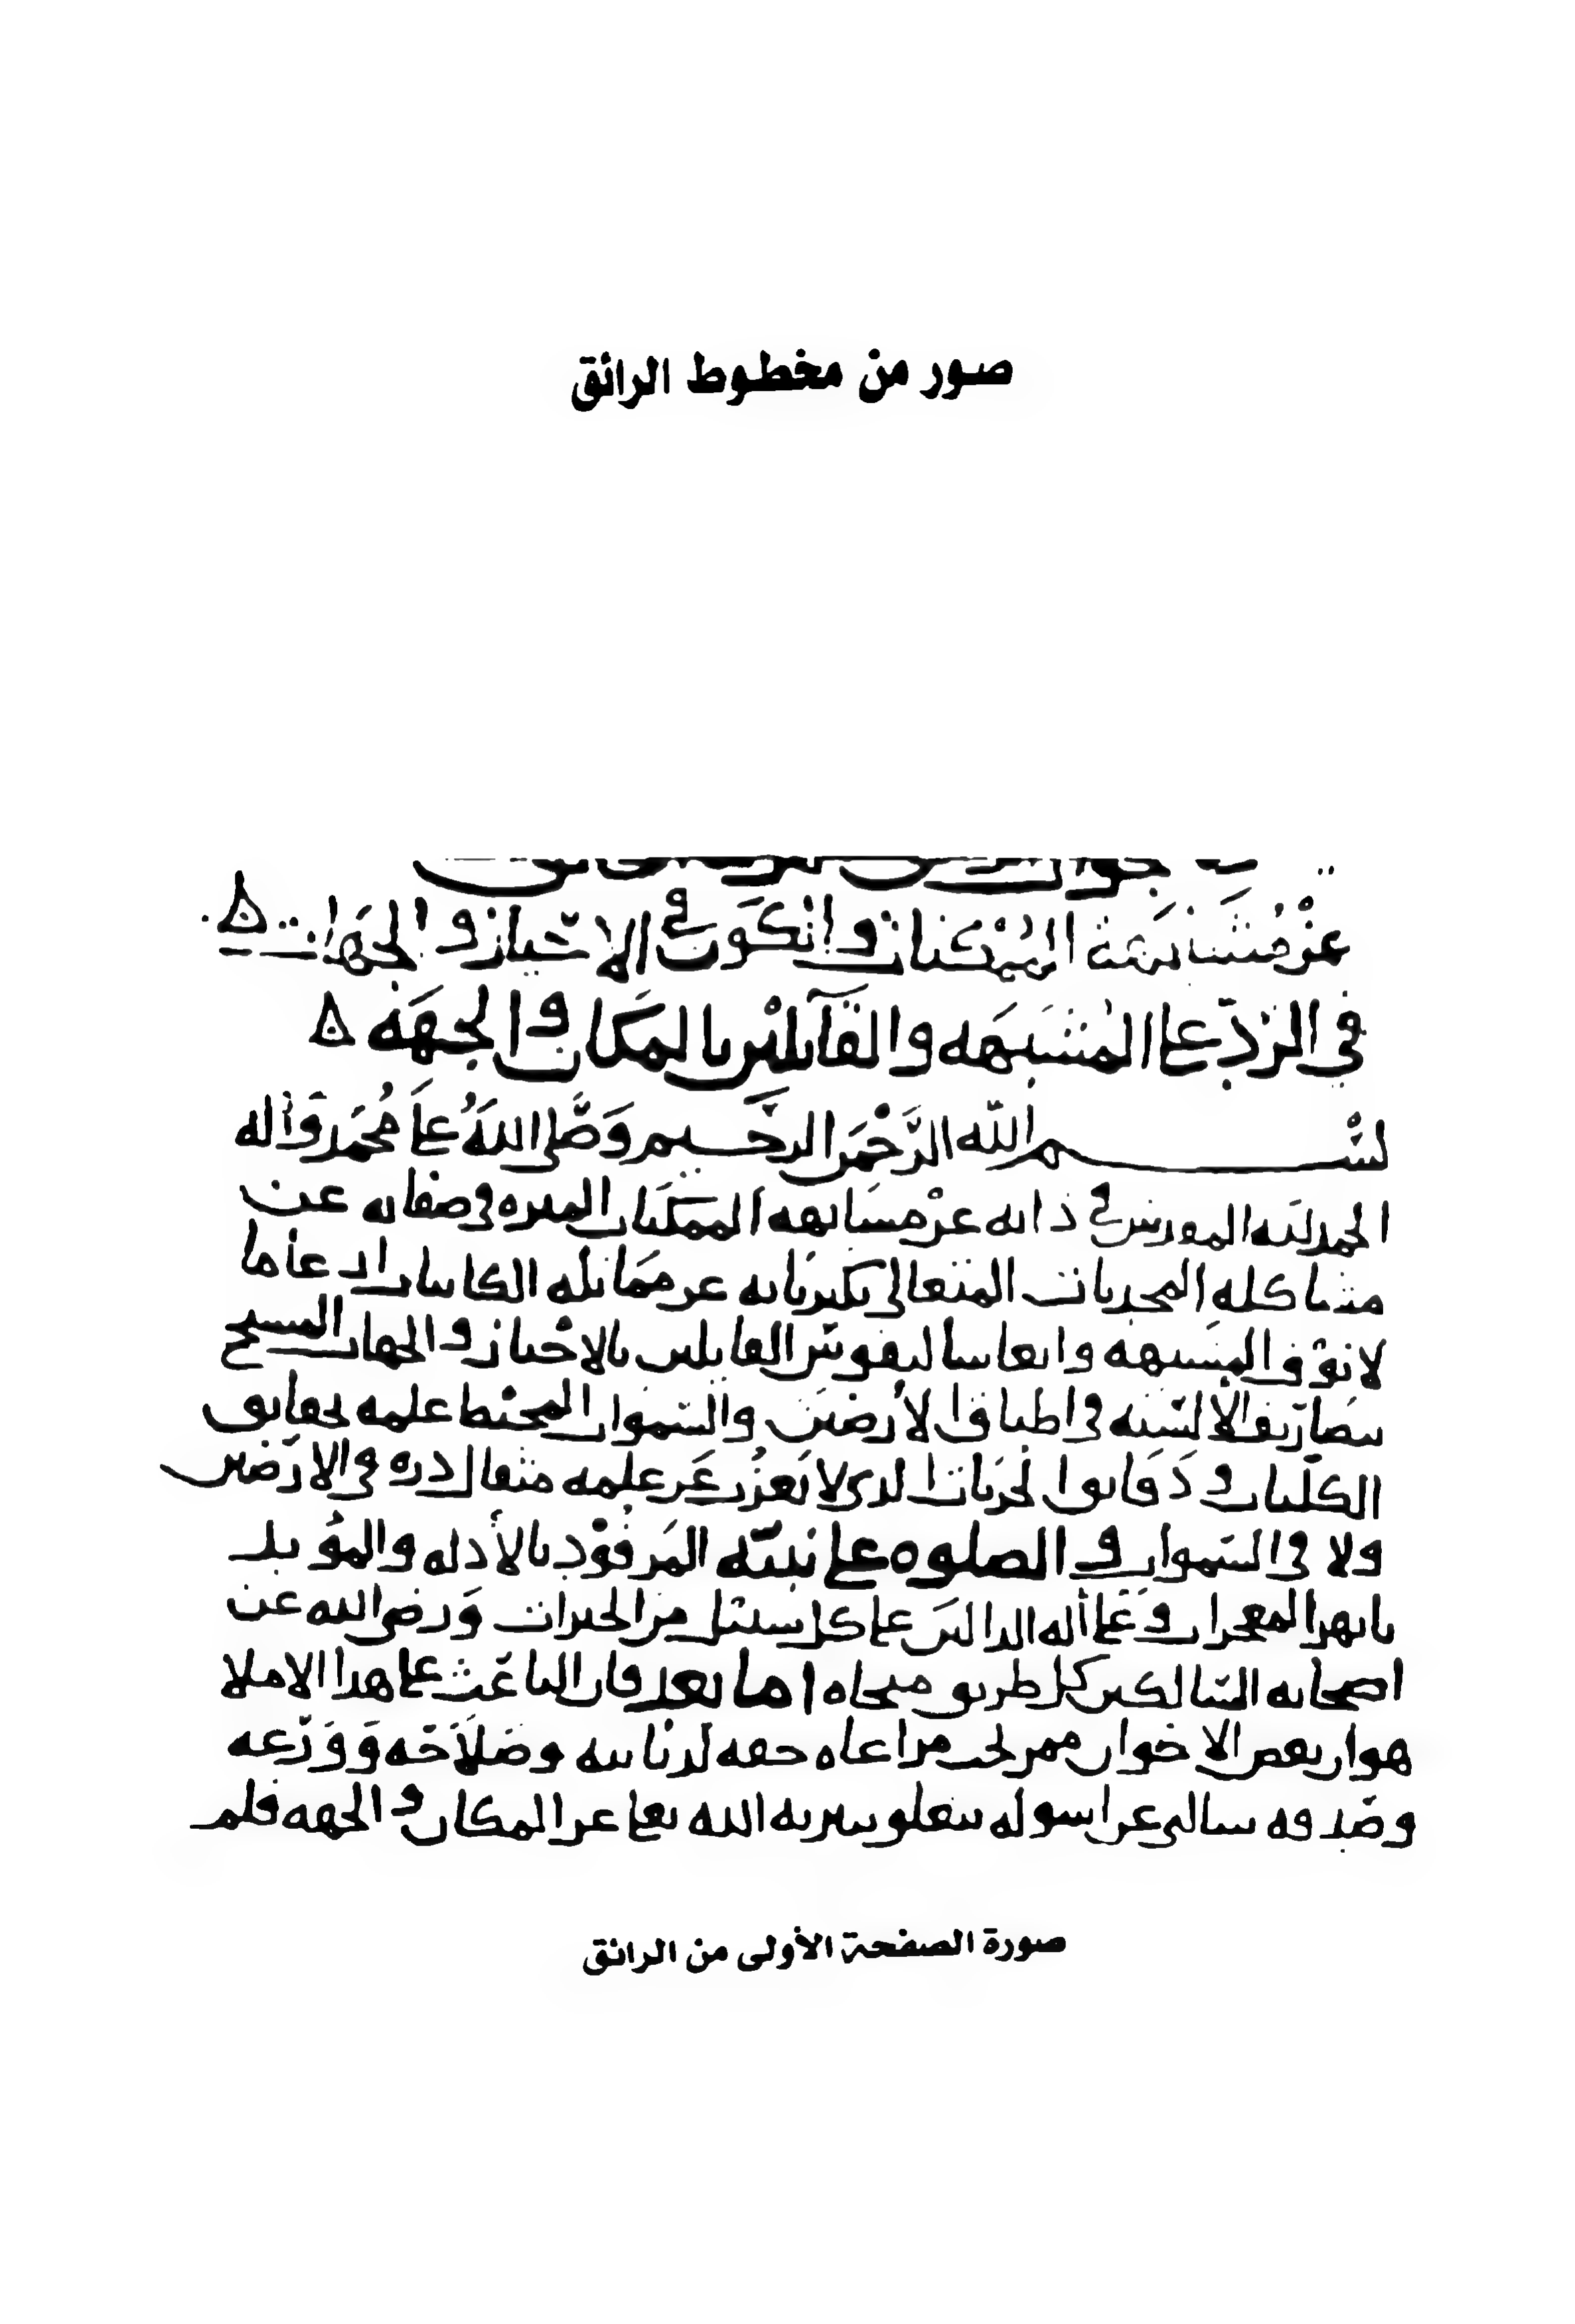 صور من مخطوط الرائق
عن مشابهة الممكنات والكون في الاحياز والجهات
في الرد على المشبهه والقائلين بالمكان والجهه
بسم الله الرحمن الرحيم وصلى الله على محمد وآله
الحمد لله في ذاته عن مشابهه الممكنات في صفاته عن
مشاكله المحدثات المتعالي بكبريائه عن مماثله الكائنات
المشبهه القايلين بالاحياز والجهات المسبح
بتصاريف الالسنه في اطباق الارضين والسموات المحيط علمه بحقايق
الكليات ودقايق الجزيات الذي لا يعزب عن علمه مثقال ذره في الارضين
ولا في السموات والصلوه على نبيه المرفود بالأدله والمؤيد
بابهر المعجزات وعلى أله الدالين على كل سبيل من الخيرات ورضي الله عن
اصحابه السالكين كل طريق منجاه اما بعد فان الباعث على هذا الاملا
هو ان بعض الاخوان ممن تجب مراعاه حقه لديانته وصلاحه وورعه
وصدقه سالني عن اسوله تتعلق بتنزيه الله تعلى عن المكان والجهه فلم
صورة الصفحة الأولى من الرائق